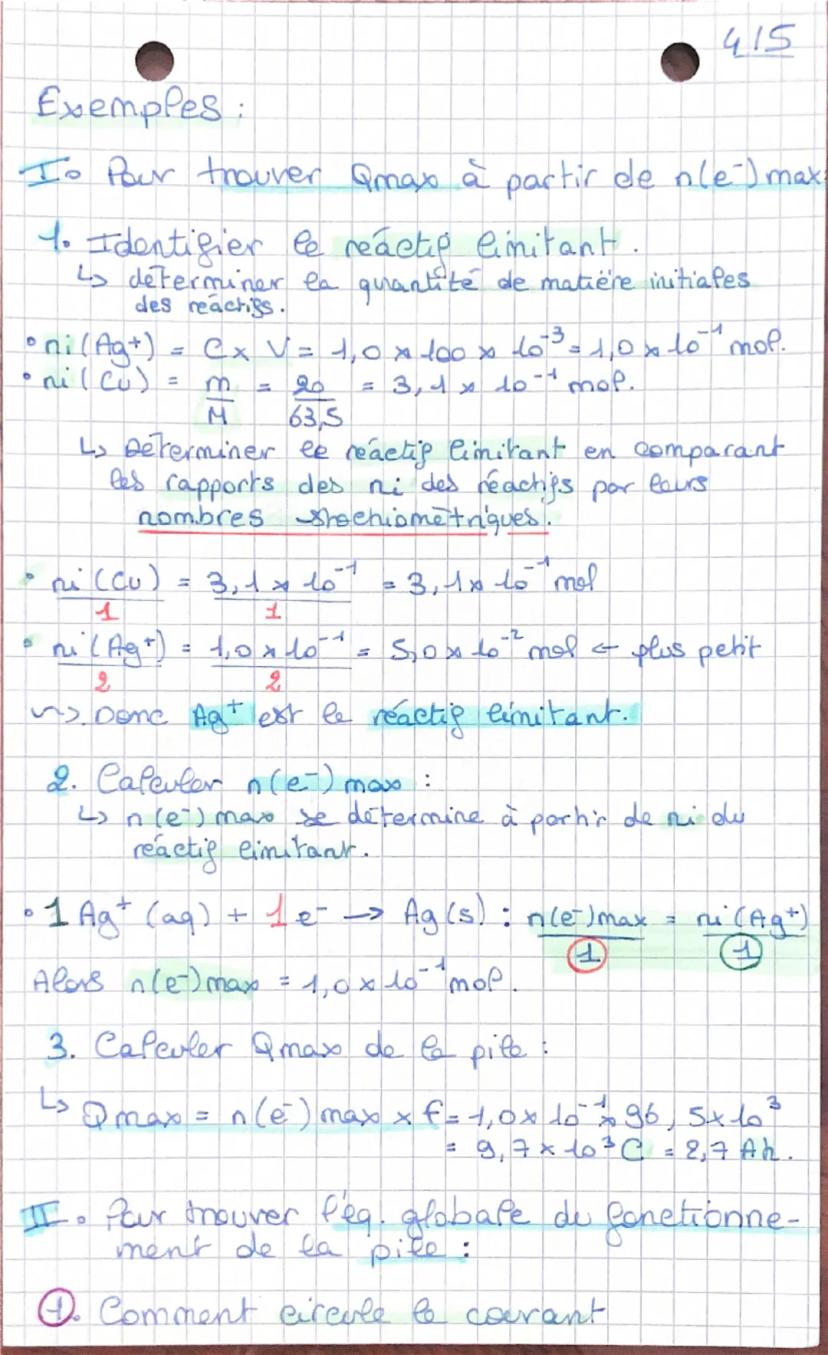 4/5
Exemples :
I. Pour trouver Qmax à partir de n(e⁻)max
1. Identifier le réactif limitant.
↳ déterminer la quantité de matière initiales
des réactifs.
• ni(Ag⁺) = C × V = 1,0 × 100 × 10⁻³ = 1,0 × 10⁻¹ mol.
• ni(Cu) = m/M = 20/63,5 = 3,1 × 10⁻¹ mol.
↳ Déterminer le réactif limitant en comparant
les rapports des ni des réactifs par leurs
nombres stœchiométriques.
• ni(Cu)/1 = 3,1 × 10⁻¹/1 = 3,1 × 10⁻¹ mol
• ni(Ag⁺)/2 = 1,0 × 10⁻¹/2 = 5,0 × 10⁻² mol ← plus petit
↝ Donc Ag⁺ est le réactif limitant.
2. Calculer n(e⁻)max :
↳ n(e⁻)max se détermine à partir de ni du
réactif limitant.
• 1 Ag⁺(aq) + 1e⁻ → Ag(s) : n(e⁻)max/1 = ni(Ag⁺)/1
Alors n(e⁻)max = 1,0 × 10⁻¹ mol.
3. Calculer Qmax de la pile :
↳ Qmax = n(e⁻)max × F = 1,0 × 10⁻¹ × 96,5 × 10³
= 9,7 × 10³ C = 2,7 Ah.
II. Pour trouver l'éq. globale du fonctionne-
ment de la pile :
1. Comment circule le courant